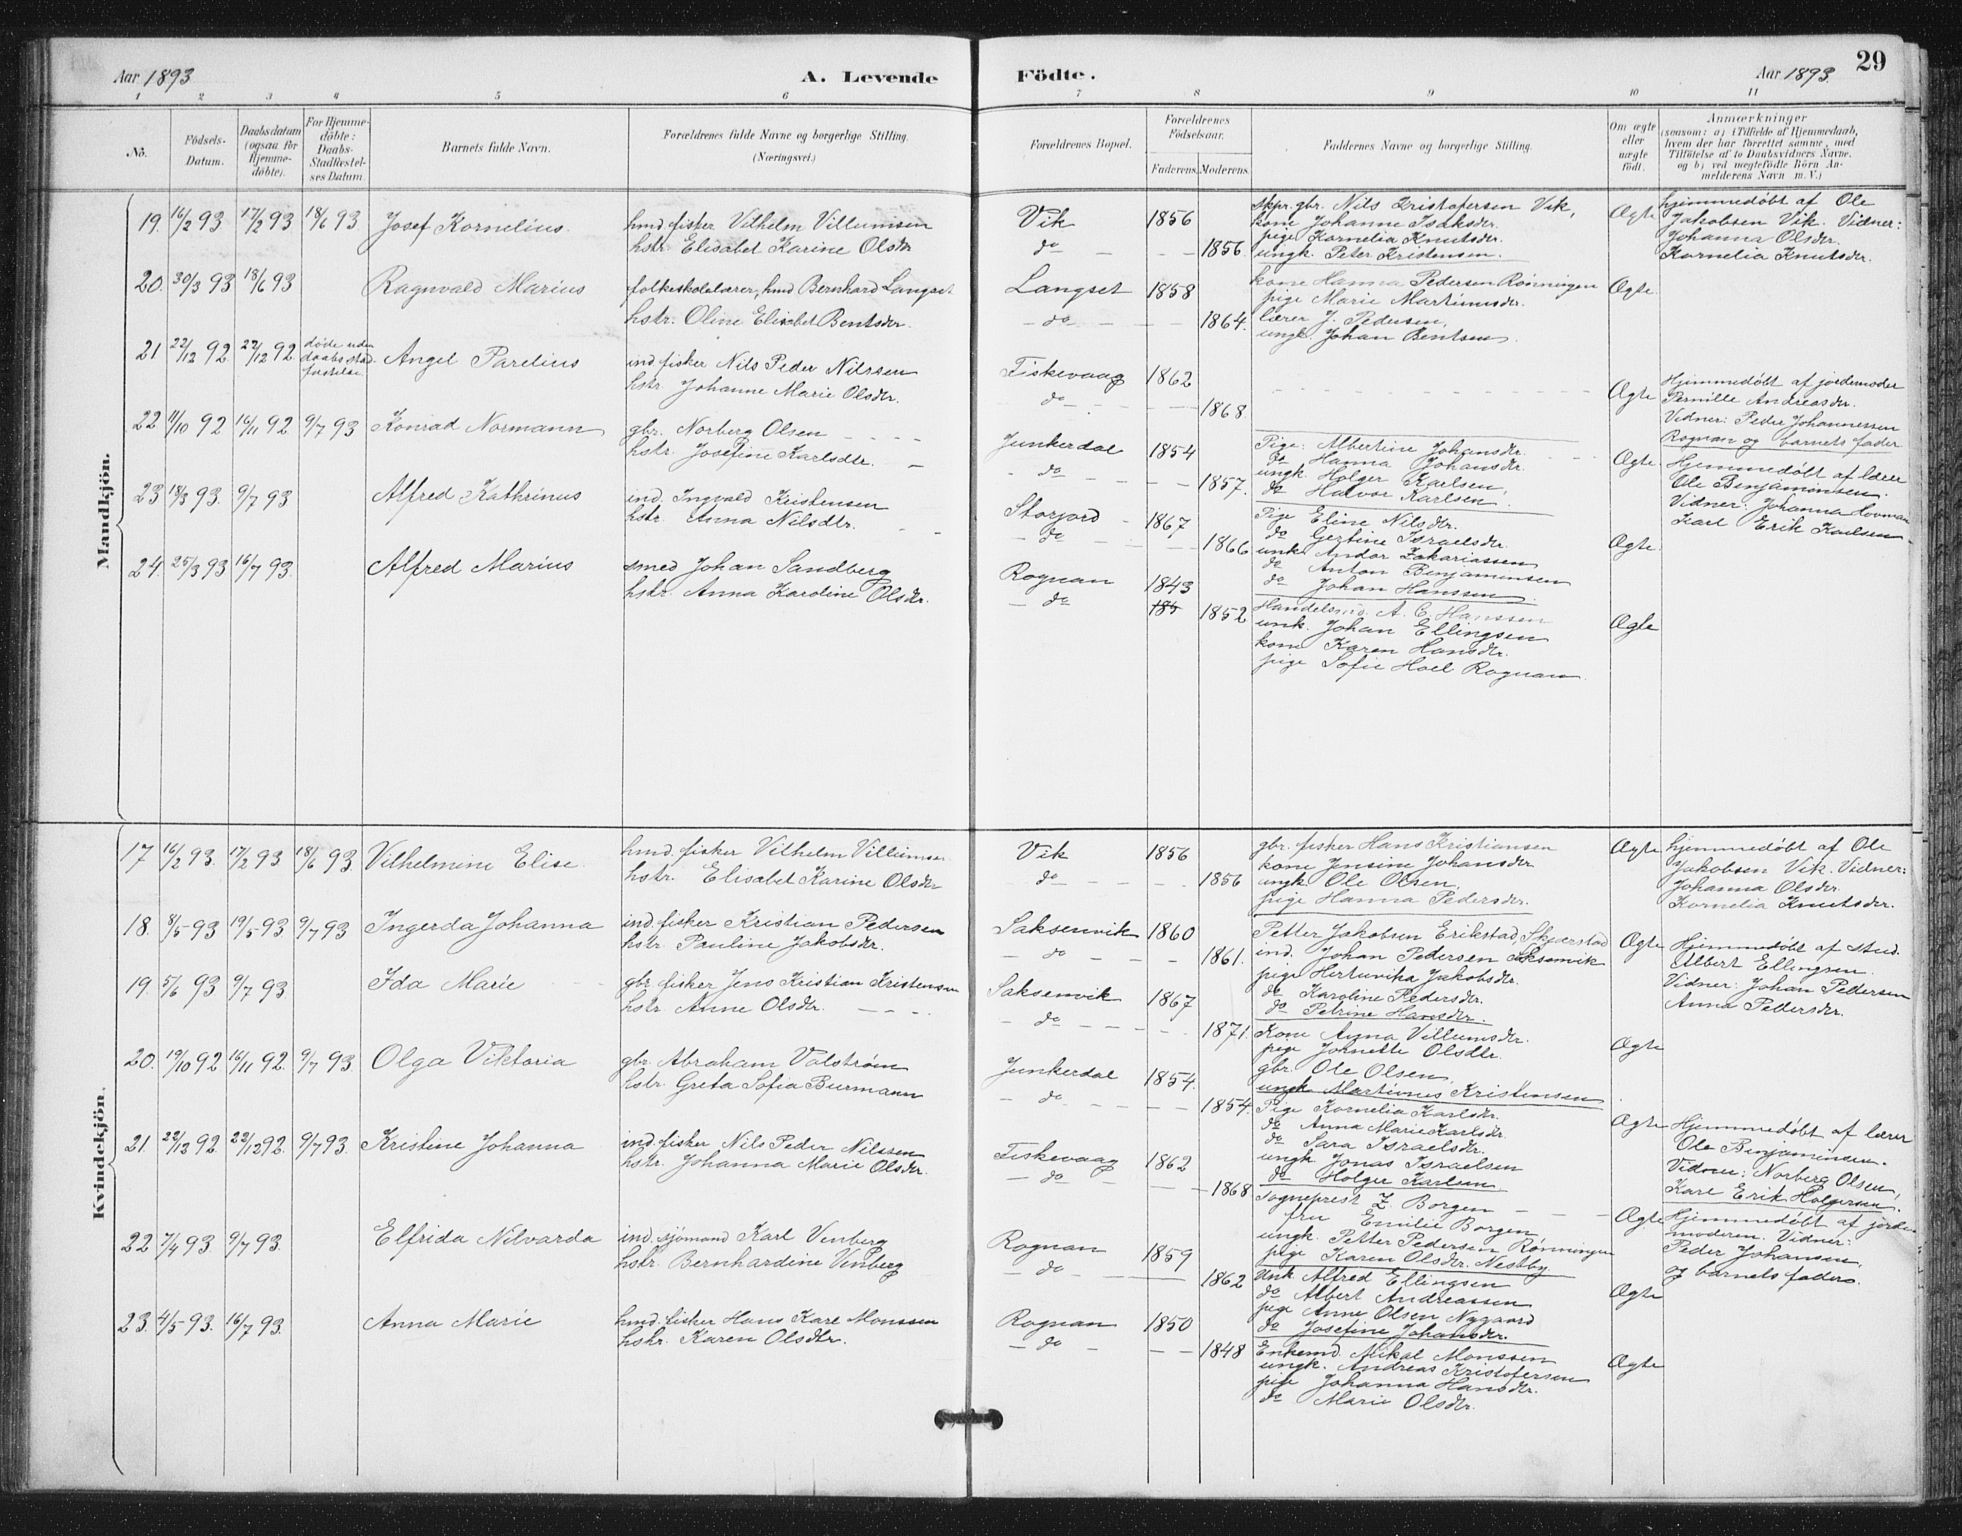 Aar 1893
A. Levende
Födte.
Aar 1893.
29
1 2 3 4 5 6 7 8 9 10 11
No.
Födsels-
Datum.
Daabsdatum
(ogsaa for
Hjemme-
döbte).
For Hjemme-
döbte:
Daabs-
Stadfæstel-
ses Datum.
Barnets fulde Navn.
Forældrenes fulde Navne og borgerlige Stilling.
(Næringsvei.)
Forældrenes Bopæl.
Forældrenes
Födselsaar.
Faderens. Moderens.
Faddernes Navne og borgerlige Stilling.
Om ægte
eller
uægte
født.
Anmærkninger
(saasom: a) i Tilfælde af Hjemmedaab,
hvem der har forrettet samme, med
Tilföielse af to Daabsvidners Navne.
og b) ved uægtefödte Börn An-
melderens Navn m. V.)
Mandkjön.
19. 16/2 93 17/2 93 18/6 93 Josef Kornelius.
hmd. fisker Vilhelm Villumsen
hstr. Elisabet Karine Olsdr
Vik 1856
do 1856.
skpr. gbr. Nils Kristofersen Vik,
kone Johanne Isaksdr.
pige Kornelia Knutsdr.
ungk. Peter Kristensen.
Ægte
hjemmedøbt af Ole
Jakobsen Vik. Vidner:
Johanna Olsdr.
Kornelia Knutsdr.
20. 30/3 93 18/6 93 Ragnvald Marius
folkeskolelærer, hmd Bernhard Langset
hstr. Oline Elisabet Bentsdr.
Langset 1858
do 1864.
kone Hanna Pedersen Rønningen
pige Marie Martinusdr.
lærer J. Pedersen,
ungk. Johan Bentsen
Ægte.
21 22/12 92 22/12 92 døde uden
daabs stad
fæstelse
Angel Parelius
ind. fisker Nils Peder Nilssen
hstr. Johanne Marie Olsdr.
Fiskevaag 1862
do 1868.
Ægte
Hjemmedøbt af jordemoder
Pernille Andreasdr.
Vidner: Peder Johannessen
Rognan og barnets fader
22 11/10 92 16/11 92 9/7 93 Konrad Normann
gbr. Norberg Olsen
hstr. Josefine Karlsdtr.
Junkerdal 1854
do 1857.
Pige: Albertine Johansdr.
do Hanna Johansdr.
ungk. Holger Karlsen,
do Halvor Karlsen
Ægte.
Hjemmedøbt af lærer
Ole Benjaminsen.
Vidner: Johanna
Karl Erik Karlsen
23 18/3 93. 9/7 93 Alfred Kathrinus
ind. Ingvald Kristensen
hstr. Anna Nilsdtr.
Storjord 1867
do 1866
Pige Eline Nilsdr.
do Gertine Israelsdr.
unk. Andor Zakariassen
do Anton Benjaminsen
do Johan Hanssen.
Ægte.
24. 25/3 93 16/7 93. Alfred Marius
smed Johan Sandberg
hstr. Anna Karoline Olsdr.
Rognan 1843
do 185 1852
Handelsmd. A. C. Hanssen
unk. Johan Ellingsen
kone Karen Hansdr.
pige Sofie Hoel Rognan.
Ægte
Kvindekjön.
17 16/2 93. 17/2 93 18/6 93. Vilhelmine Elise.
hmd. fisker Vilhelm Villumse.
hstr. Elisabet Karine Olsdr
Vik 1856
do 1856
gbr. fisker Hans Kristiansen
kone Jensine Johansdr
ungk Ole Olsen,
pige Hanna Pedersdr.
Ægte
hjemmedøbt af Ole
Jakobsen Vik. Vidner:
Johanna Olsdr.
Kornelia Knutsdr.
18. 8/5 93 19/5 93 9/7 93 Ingerda Johanna
ind. fisker Kristian Pedersen
hstr. Pauline Jakobsdr.
Saksenvik 1860
do 1861.
Petter Jakobsen Erikstad, Skjerstad
ind. Johan Pedersen Saksenvik
pige Hertuvika Jakobsdr.
do Karoline Pedersdr.
do Petrine Hansdr.
Ægte
Hjemmedøbt af stud.
Albert Ellingsen.
Vidner: Johan Pedersen
Anna Pedersdr.
19. 5/6 93 9/7 93. Ida Marie
gbr. fisker Jens Kristian Kristensen
hstr. Anne Olsdr.
Saksenvik 1867
do 1871.
Kone Anna Villumsdr.
pige Jornette Olsdtr.
gbr. Ole Olsen,
ungk. Martinus Kristensen
Ægte
20. 19/10 92 16/11 92. 9/7 93. Olga Viktoria
gbr. Abraham Valstrøm
hstr. Greta Sofia Burmann
Junkerdal 1854.
do 1854.
Pige Kornelia Karlsdr.
do Anna Marie Karlsdr.
do Sara Israelsdr.
ungk. Jonas Israelsen
do Holger Karlsen
Ægte
Hjemmedøbt af lærer
Ole Benjaminsen.
Vidner: Norberg Olsen,
Karl Erik Holgersen.
21. 22/12 92. 22/12 92. 9/7 93. Kristine Johanna
ind. fisker Nils Peder Nilssen
hstr. Johanna Marie Olsdr.
Fiskevaag 1862
do 1868
Sogneprest Z. Borgen
fru Emilie Borgen
ungk. Petter Pedersen Rønningen
pige Karen Olsdr. Nestby
Ægte
Hjemmedøbt af jorde-
moderen. Vidner:
Peder Johansen,
og barnets fader.
22 7/4 93. 9/7 93. Elfrida Nilvarda
ind. sjømand Karl Venberg
hstr. Bernhardine Venberg
Rognan 1859
do 1862
Unk Alfred Ellingsen
do Albert Andreassen
pige Anne Olsen Nygaard
do Josefine Johansdr.
Ægte
23. 4/5 93. 16/7 93. Anna Marie
hmd. fisker Hans Karl Monssen
hstr. Karen Olsdtr.
Rognan 1850
do 1848
Enkemd. Mikal Monssen
ungk. Andreas Kristofersen
pige Johanna Hansdr.
do Marie Olsdr.
Ægte